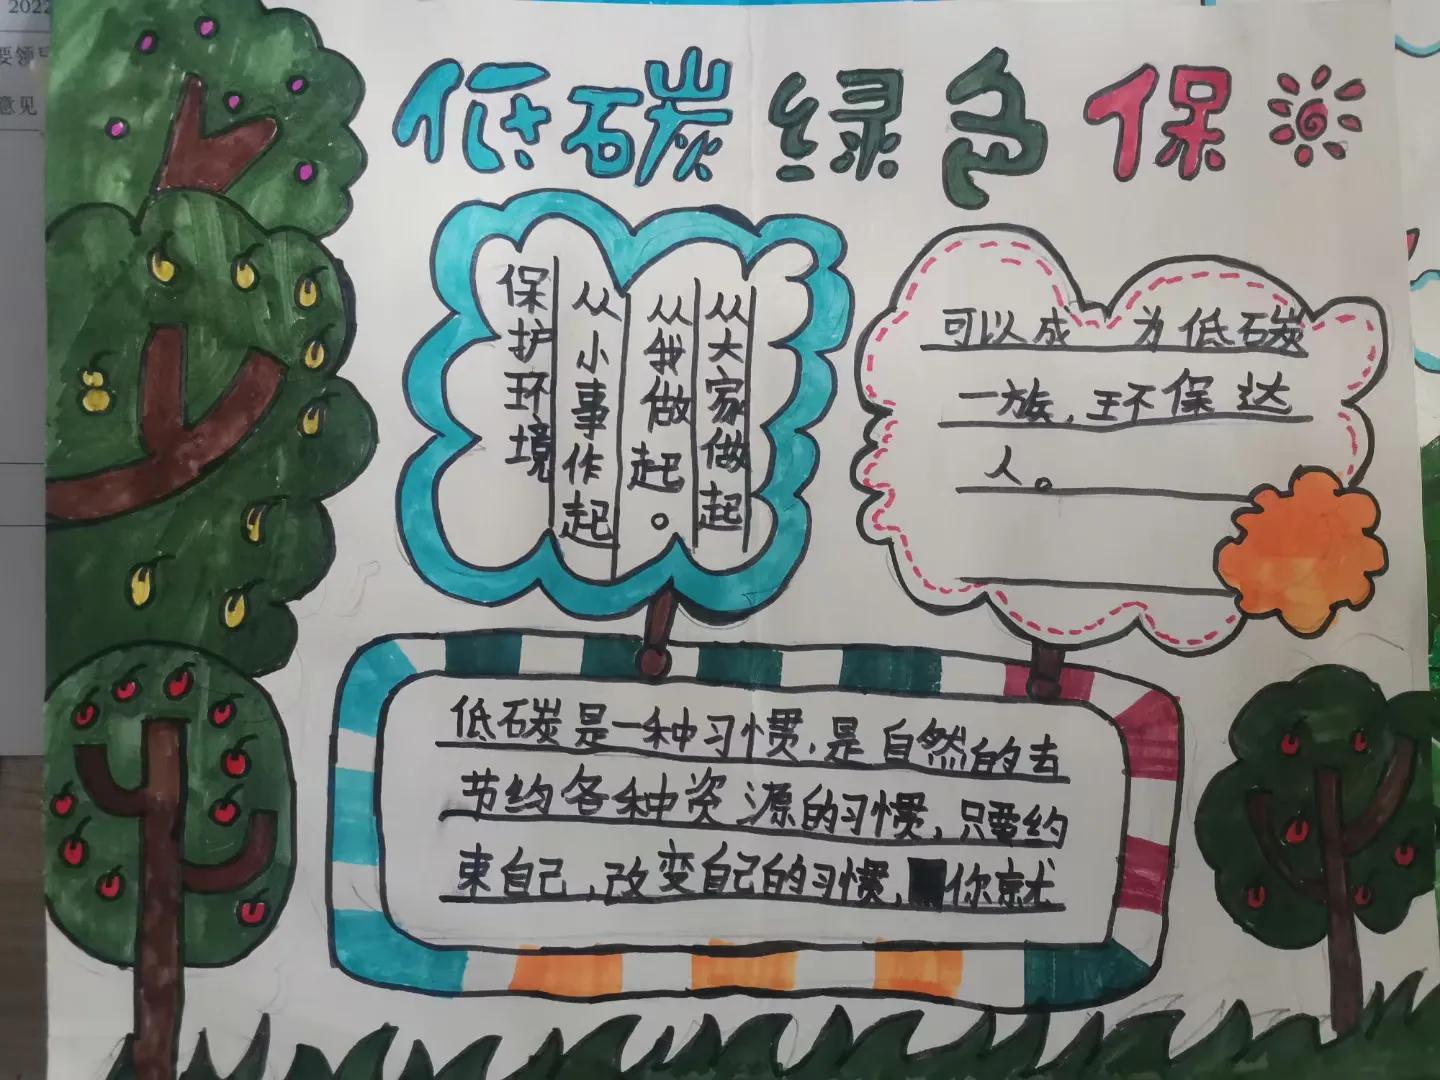 2022
要领
意见
低碳绿色保
保护环境
从小事作起
从我做起。
从大家做起
低碳是一种习惯,是自然的去
节约各种资源的习惯,只要约
束自己,改变自己的习惯,你就
可以成为低碳
一族,环保达
人。